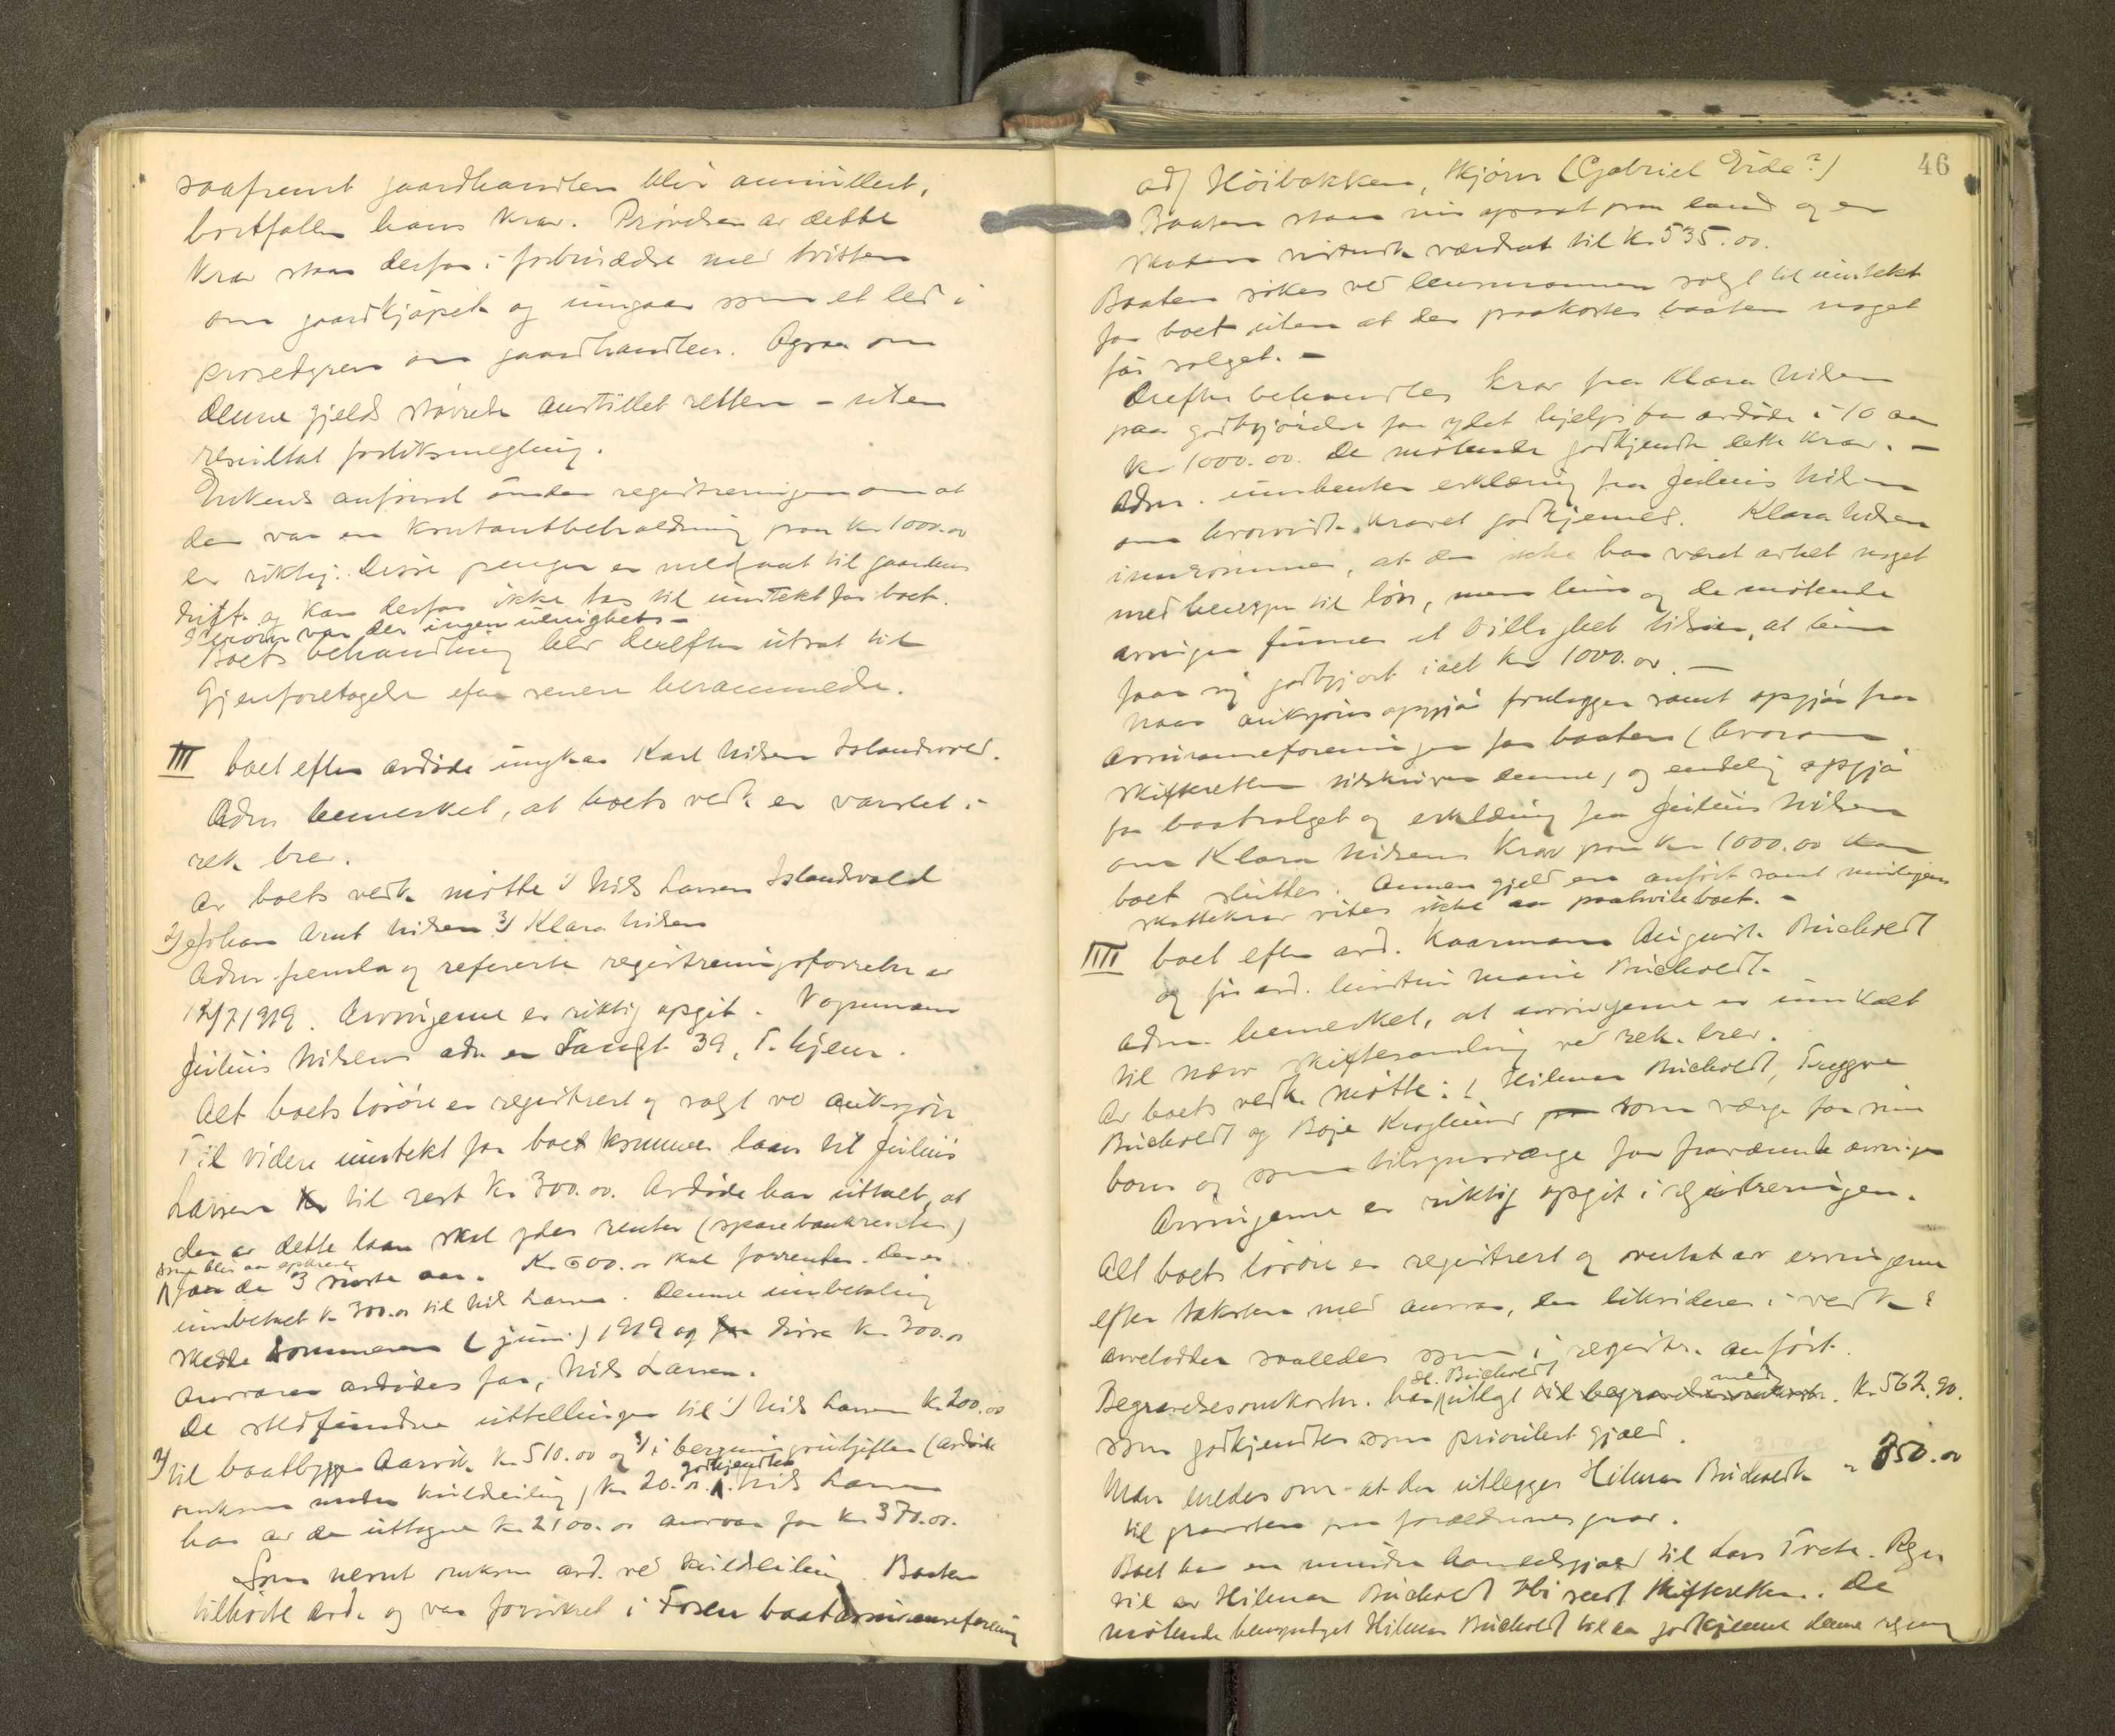 saafremt gaardhandlen blir annullert,
bortfaller hans krav. Prøvelsen av dette
krav staar derfor i forbindelse med tvisten
om gaardkjøpet og inngaar som et led i
prosedyren om gaardhandlen. Ogsaa om
denne gjelds størrelse anstillet retten – uten
resultat forliksmegling.
Enkens anførsel under registreringen om at
der var en kontantbeholdning paa kr 1000.00
er riktig. Disse penger er medgaat til gaardens
drift og kan derfor ikke tas til inntekt for boet.
Herom var der ingen uenighet. –
Boets behandling blev derefter utsat til
Gjenforetagelse efter senere berammelse.
III boet efter avdøde ungkar Karl Nilsen Islandsvold.
Adm bemerket, at boets vedk. er varslet i
rek. brev.
Av boets vedk. møtte 1/ Nils Larsen Islandsvold
2/ Johan Arnt Nilsen 3/ Klara Nilsen
Adm fremla og refererte registreringsforretn. av
12/7 1919. Arvingerne er riktig opgit. Vognmann
Julius Nilsens adr. er Tangt. 39, T.hjem.
Alt boets løsøre er registrert og solgt ved auksjon
Til videre inntekt for boet kommer laan til Julius
Larsen til rest kr 300.00. Avdøde har uttalt, at
der av dette laan skal ydes renter (sparebankrenter)
for de 3 siste aar. Kr 600.00 skal forrentes. Der er
innbetalt kr 300.00 til Nils Larsen. Denne innbetaling
skedde sommeren (juni) 1919 og for disse kr 300.00
ansvarer avdødes far, Nils Larsen.
De stedfundne uttellinger til 1/ Nils Larsen kr 200.00
2/ til baatbygger Aarvik kr 510.00 og 3/ i bergningsutgifter (avdøde
omkom under kuldseiling) kr 20.00 godkjendtes. Nils Larsen
har av de uttagne kr 2100.00 ansvar for kr 370.00.
Som nevnt omkom avd. ved kuldseiling. Baaten
tilhørte avd. og var forsikret i Fosen baatassuranseforening
46
adr Høibakken, Skjørn (Gabriel Eide?)
Baaten staar nu opsat paa land og er
skaden vistnok værdsat til kr 535.00.
Baaten søkes ved lensmannen solgt til inntekt
for boet uten at der paakostes baaten noget
før salget. –
Derefter behandles krav fra Klara Nilsen
paa godtgjørelse for ydet hjelp for avdøde i 10 aar
kr 1000.00. De møtende godkjendte dette krav. –
Adm. innhenter erklæring fra Julius Nilsen
om hvorvidt kravet godkjennes. Klara Nilsen
innrømmer, at der ikke har været avtalt noget
med hensyn til løn, men hun og de møtende
arvinger finner et billighet tilsier, at hun
faar sig godtgjort i alt kr 1000.00. –
Naar auksjonsopgjør foreligger samt opgjør fra
assuranseforeningen for baaten (hvorom
skifteretten tilskriver denne) og endelig opgjør
for baatsalget og erklæring fra Julius Nilsen
om Klara Nilsens krav paa kr 1000.00 kan
boet sluttes. Annen gjeld enn anført samt muligens
skattekrav vites ikke aa paahvile boet. –
IIII boet efter avd. kaarmann August Buchholdt
og før avd. hustru Marie Buchholdt.
Adm. bemerket, at arvingerne er innkalt
til nærv. skiftesamling ved rek. brev.
Av boets vedk. møtte: Hilmar Buchholdt, Trygve
Buchholdt og Boje Kroglund som værge for sine
barn og som tilsynsværge for fraværende arvinger
Arvingerne er riktig opgit i registreringen.
Alt boets løsøre er registrert og overtat av arvingerne
efter taksten med ansvar, der likvideres i vedk.s
arvelodder saaledes som i registr. anført.
Begravelsesomkostn. har H. Buchholdt utlagt med kr. 562,90.
som godkjendtes som prioritert gjæld.
Man enedes om at der utlegges Hilmar Buchholdt " 350.00
til gravsten paa forældrenes grav.
Boet har en mindre handelsgjæld til Lars Tveter. Regn
vil av Hilmar Buchholdt bli sendt skifteretten. De
møtende bemyndiget Hilmar Buchholdt til aa godkjenne denne regning